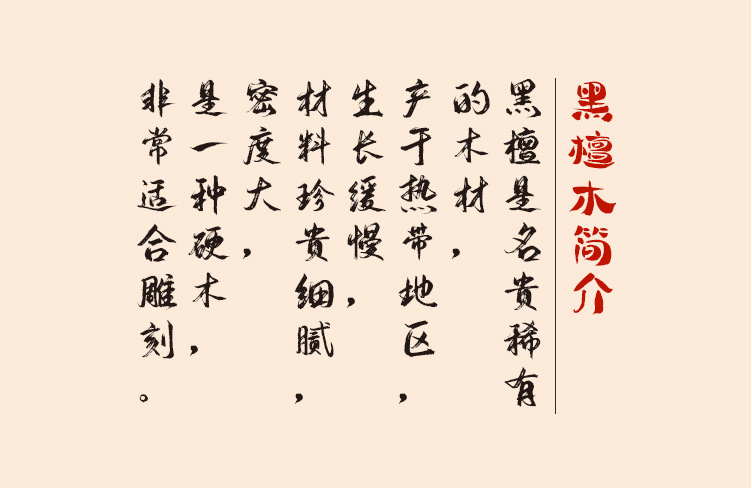 黑檀木简介
黑檀是名贵稀有
的木材，
产于热带地区，
生长缓慢，
材料珍贵细腻，
密度大，
是一种硬木，
非常适合雕刻。